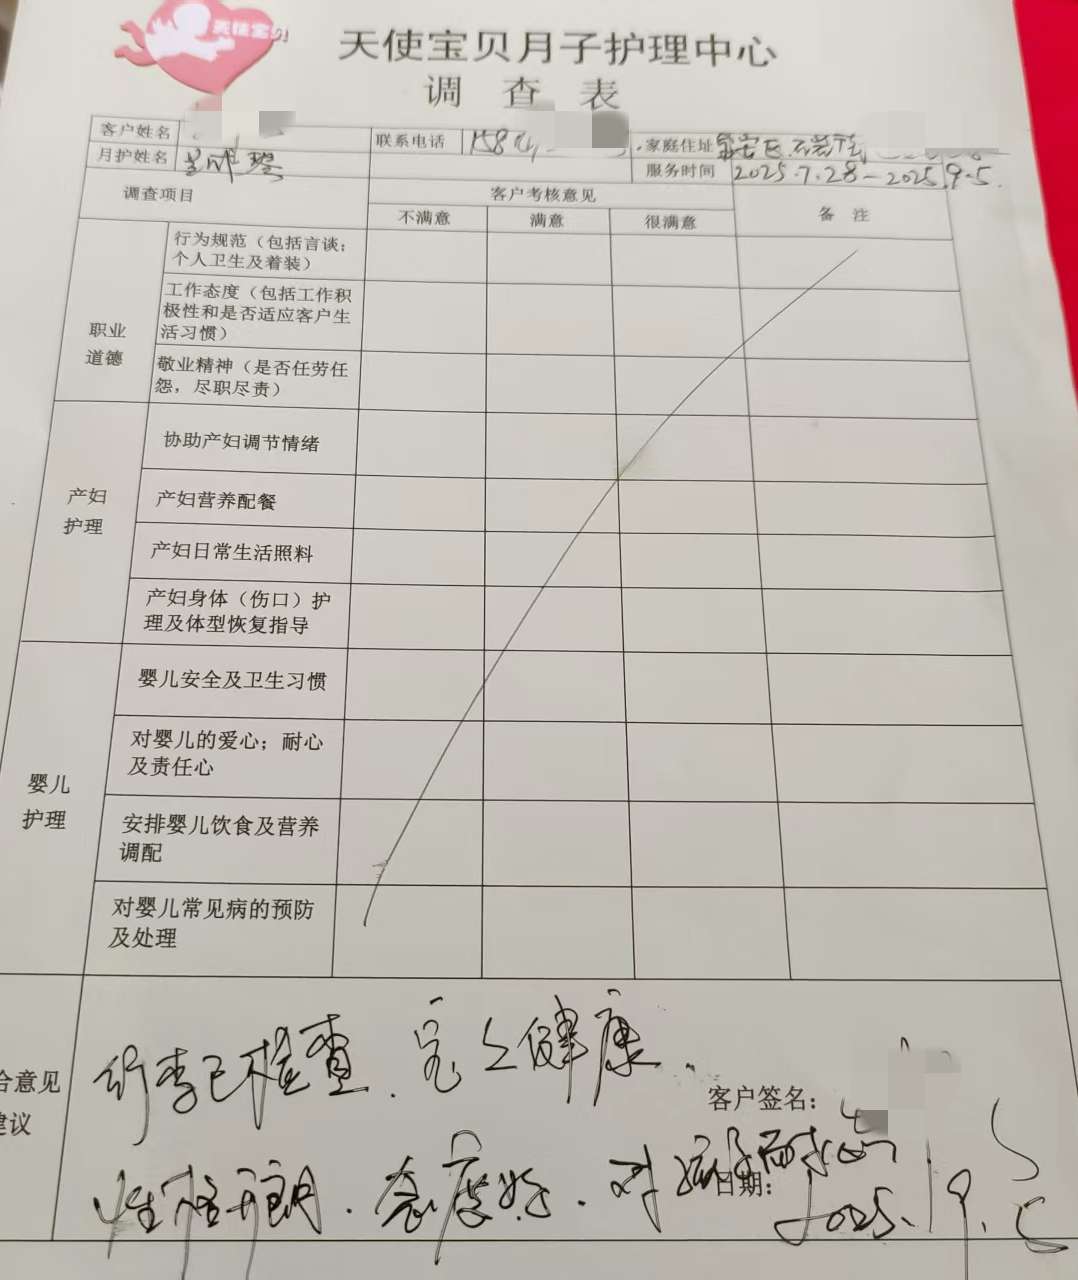 天使宝贝
天使宝贝月子护理中心
调查表
客户姓名 联系电话 158 家庭住址
月护姓名 服务时间 2025.7.28-2025.9.5.
调查项目 客户考核意见 备注
不满意 满意 很满意
职业道德
行为规范（包括言谈；
个人卫生及着装）
工作态度（包括工作积
极性和是否适应客户生
活习惯）
敬业精神（是否任劳任
怨，尽职尽责）
产妇护理
协助产妇调节情绪
产妇营养配餐
产妇日常生活照料
产妇身体（伤口）护
理及体型恢复指导
婴儿护理
婴儿安全及卫生习惯
对婴儿的爱心；耐心
及责任心
安排婴儿饮食及营养
调配
对婴儿常见病的预防
及处理
合意见
建议
行李已检查.宝宝健康.
客户签名：
性格开朗.态度好.对孩子耐心
日期：2025.9.5